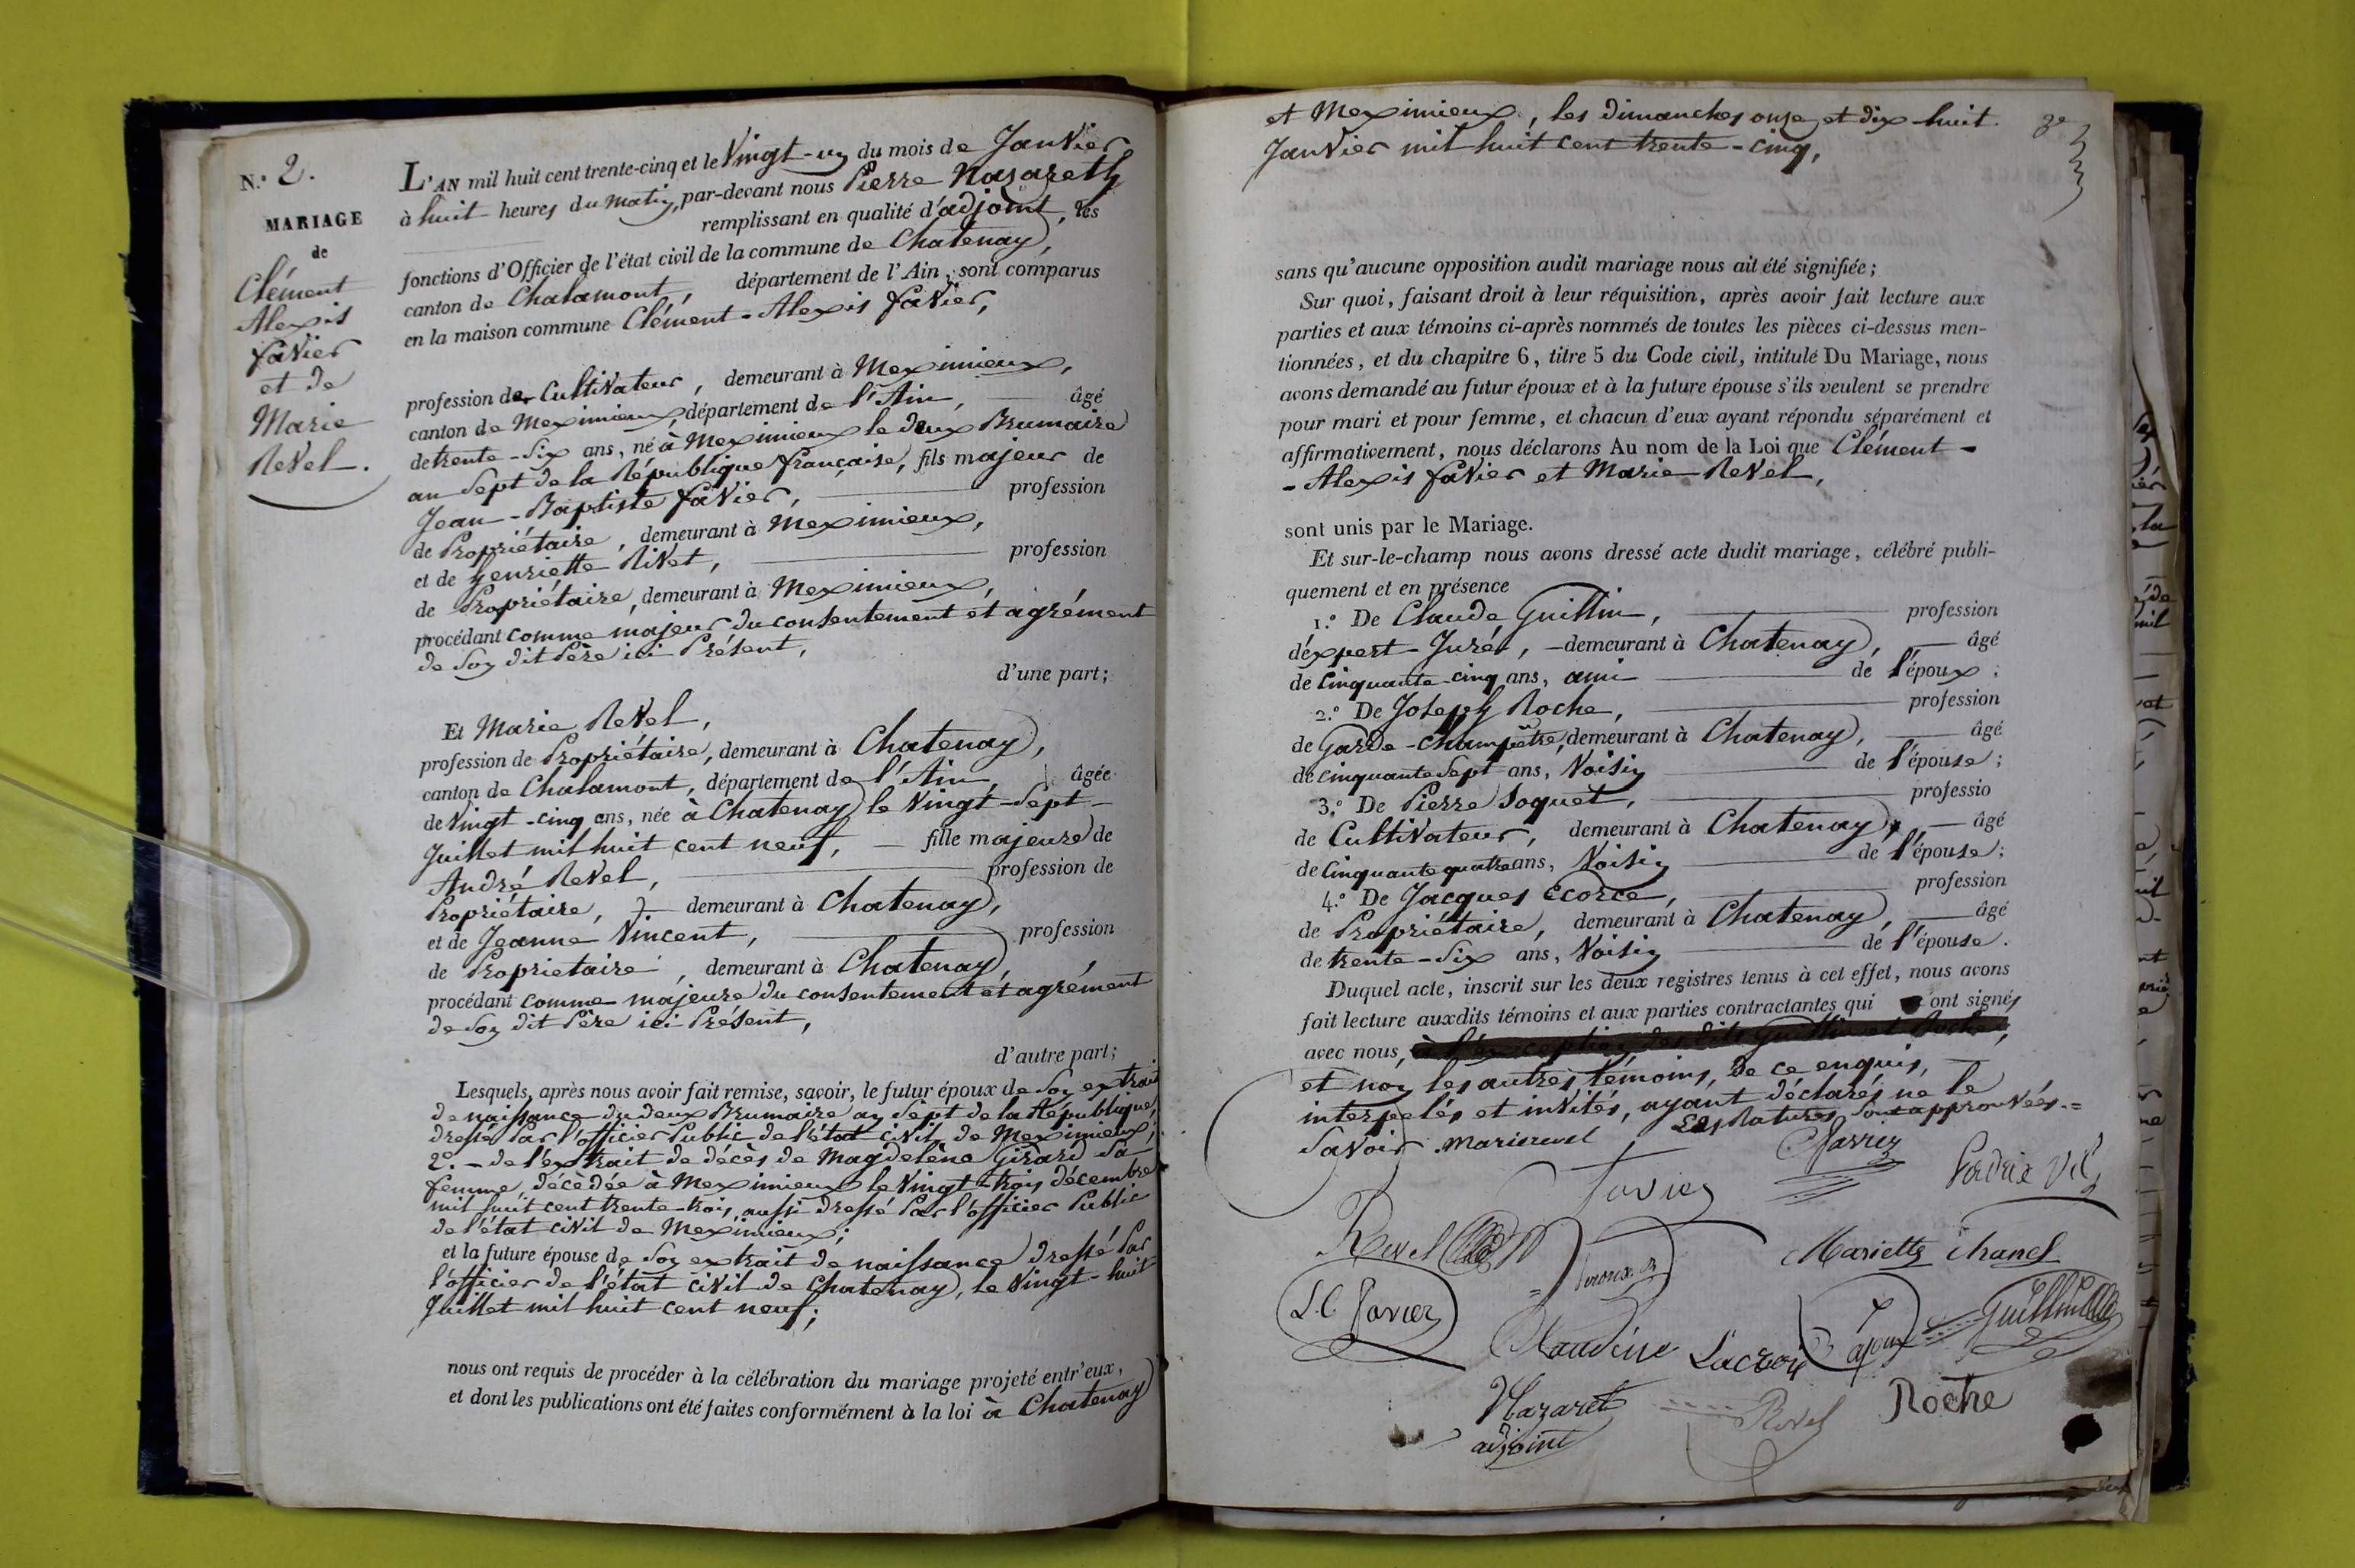 N.° 2.
MARIAGE
de
Clément
Alexis
Favier
et de
Marie
Revel.
L'AN mil huit cent trente-cinq et le Vingt-un du mois de Janvier
à huit heures du matin, par-devant nous Pierre Nazareth
remplissant en qualité d'adjoint, les
fonctions d'Officier de l'état civil de la commune de Chatenay,
canton de Chalamont, département de l'Ain, sont comparus
en la maison commune Clément-Alexis Favier,
profession de Cultivateur, demeurant à Meximieux,
canton de Meximieux, département de l'Ain, âgé
de trente-Six ans, né à Meximieux le deux Brumaire
an Sept de la République française, fils majeur de
Jean-Baptiste Favier, profession
de Propriétaire, demeurant à Meximieux,
et de henriette Rivet, profession
de Propriétaire, demeurant à Meximieux,
procédant comme majeur du consentement et agrément
de Son dit Père ici Présent,
d'une part;
Et Marie Revel,
profession de Propriétaire, demeurant à Chatenay,
canton de Chalamont, département de l'Ain, âgée
de Vingt-cinq ans, née à Chatenay le Vingt-Sept
Juillet mil huit cent neuf, fille majeure de
André Revel, profession de
Propriétaire, demeurant à Chatenay,
et de Jeanne Vincent, profession
de Proprietaire, demeurant à Chatenay,
procédant comme majeure du consentement et agrément
de Son dit Père ici Présent,
d'autre part;
Lesquels, après nous avoir fait remise, savoir, le futur époux de Son extrait
de naissance du deux Brumaire an Sept de la République,
dressé Par l'officier Public de l'état civil de Meximieux;
2.° - de l'extrait de décès de Magdelène Girard Sa
femme, décèdée à Meximieux le Vingt-trois décembre
mil huit cent trente-trois, aussi dressé Par l'officier Public
de l'état civil de Meximieux;
et la future épouse de Son extrait de naissance dressé Par
l'officier de l'état civil de Chatenay, le Vingt-huit
Juillet mil huit cent neuf;
nous ont requis de procéder à la célébration du mariage projeté entr'eux,
et dont les publications ont été faites conformément à la loi à Chatenay
et Meximieux, les dimanches onze et dix-huit
Janvier mil huit cent trente-cinq,
sans qu'aucune opposition audit mariage nous ait été signifiée;
Sur quoi, faisant droit à leur réquisition, après avoir fait lecture aux
parties et aux témoins ci-après nommés de toutes les pièces ci-dessus men-
tionnées, et du chapitre 6, titre 5 du Code civil, intitulé Du Mariage, nous
avons demandé au futur époux et à la future épouse s'ils veulent se prendre
pour mari et pour femme, et chacun d'eux ayant répondu séparément et
affirmativement, nous déclarons Au nom de la Loi que Clément-
-Alexis Favier et Marie Revel,
sont unis par le Mariage.
Et sur-le-champ nous avons dressé acte dudit mariage, célébré publi-
quement et en présence
1.° De Claude Guillin, profession
d'expert-Juré, demeurant à Chatenay, âgé
de Cinquante-cinq ans, ami de l'époux;
2.° De Joseph Roche, profession
de Garde-Champêtre, demeurant à Chatenay, âgé
de cinquante Sept ans, Voisin de l'épouse;
3.° De Pierre Joquet, professio
de Cultivateur, demeurant à Chatenay, âgé
de Cinquante quatre ans, Voisin de l'épouse;
4.° De Jacques Ecorce, profession
de Propriétaire, demeurant à Chatenay, âgé
de trente-Six ans, Voisin de l'épouse.
Duquel acte, inscrit sur les deux registres tenus à cet effet, nous avons
fait lecture auxdits témoins et aux parties contractantes qui ont signé,
avec nous, à l'exception des dits Guillin et Roche,
et non les autres témoins, de ce enquis,
interpelés et invités, ayant déclarés ne le
Savoir. marierevel Les Ratures Sont approuvées.=
Favier
Revel
Mariette Chanel
J.C. Favier
Claudine Lacroix
Nazaret
adjoint
Revel
Roche